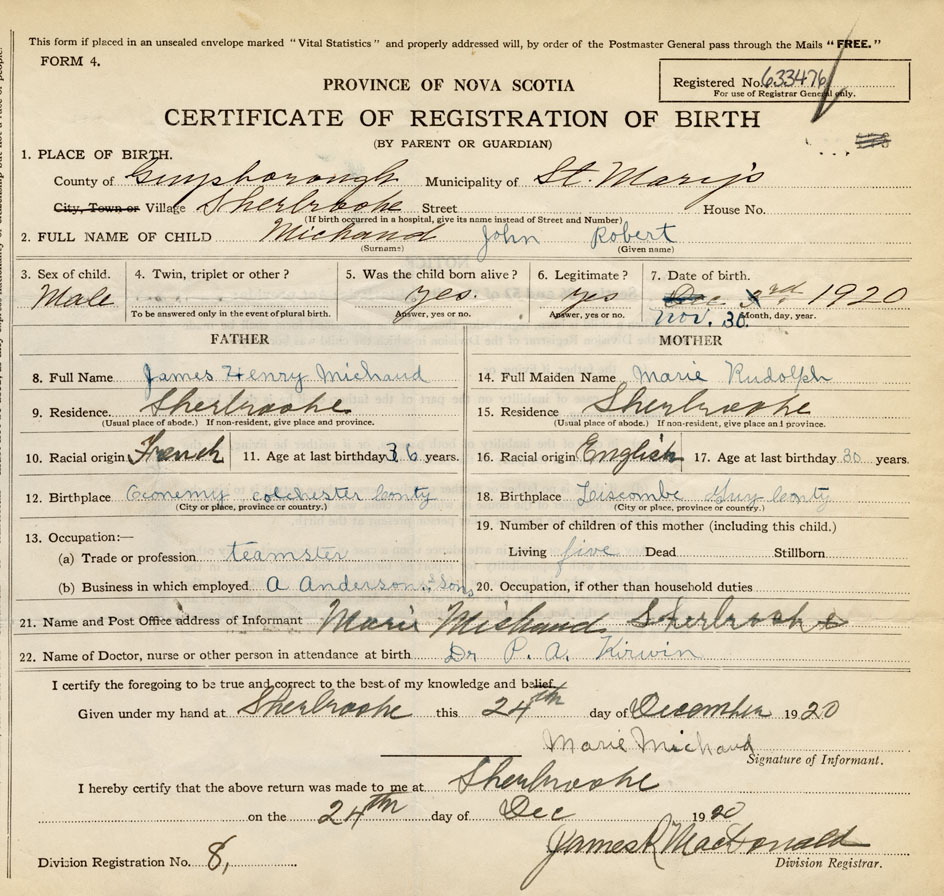 This form if placed in an unsealed envelope marked "Vital Statistics" and properly addressed will, by order of the Postmaster General pass through the Mails "FREE."
FORM 4.
Registered No. 633476
For use of Registrar General only.
PROVINCE OF NOVA SCOTIA
CERTIFICATE OF REGISTRATION OF BIRTH
(BY PARENT OR GUARDIAN)
1. PLACE OF BIRTH.
County of Guysborough Municipality of St. Mary's
City, Town or Village Sherbrooke Street House No.
(If birth occurred in a hospital, give its name instead of Street and Number)
2. FULL NAME OF CHILD Michaud John Robert
(Surname) (Given name)
3. Sex of child. 4. Twin, triplet or other? 5. Was the child born alive? 6. Legitimate? 7. Date of birth.
Male yes. yes Dec 3rd 1920
To be answered only in the event of plural birth. Answer, yes or no. Answer, yes or no. Nov. 30. Month, day, year.
FATHER MOTHER
8. Full Name James Henry Michaud 14. Full Maiden Name Marie Rudolph
9. Residence. Sherbrooke 15. Residence Sherbrooke
(Usual place of abode.) If non-resident, give place and province. (Usual place of abode.) If non-resident, give place and province.
10. Racial origin French 11. Age at last birthday 36 years. 16. Racial origin English 17. Age at last birthday 30 years.
12. Birthplace Economy colchester Conty 18. Birthplace Liscombe Guy Conty
(City or place, province or country.) (City or place, province or country.)
13. Occupation:— 19. Number of children of this mother (including this child.)
(a) Trade or profession teamster Living five Dead Stillborn
(b) Business in which employed A Anderson & Sons 20. Occupation, if other than household duties
21. Name and Post Office address of Informant Marie Michaud Sherbrooke
22. Name of Doctor, nurse or other person in attendance at birth Dr P. A. Kirwin
I certify the foregoing to be true and correct to the best of my knowledge and belief.
Given under my hand at Sherbrooke this 24th day of December 1920
Marie Michaud
Signature of Informant.
I hereby certify that the above return was made to me at Sherbrooke
on the 24th day of Dec 1920
James R MacDonald
Division Registration No. 8, Division Registrar.